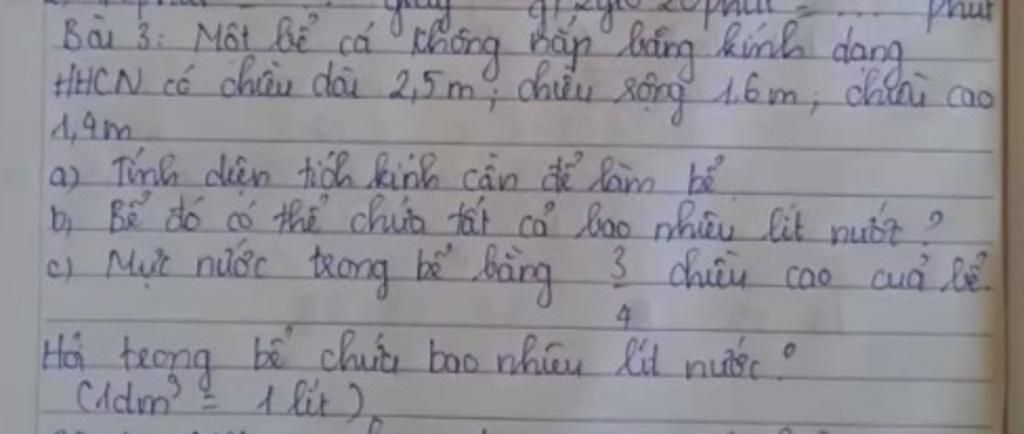 phút = ... phút
Bài 3: Một bể cá không nắp bằng kính dạng
HHCN có chiều dài 2,5m; chiều rộng 1,6m; chiều cao
1,4m
a) Tính diện tích kính cần để làm bể
b) Bể đó có thể chứa tất cả bao nhiêu lít nước?
c) Mực nước trong bể bằng 3/4 chiều cao của bể.
Hỏi trong bể chứa bao nhiêu lít nước?
(1dm³ = 1 lít)